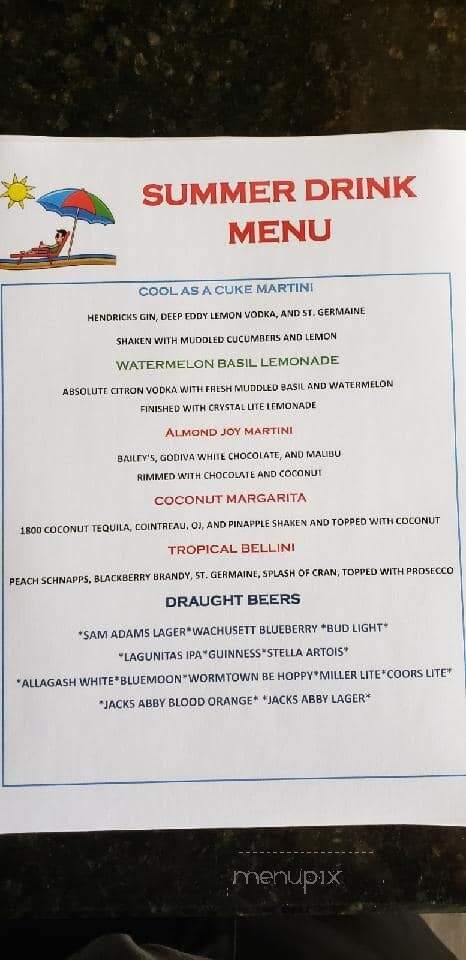 SUMMER DRINK
MENU
COOL AS A CUKE MARTINI
HENDRICKS GIN, DEEP EDDY LEMON VODKA, AND ST. GERMAINE
SHAKEN WITH MUDDLED CUCUMBERS AND LEMON
WATERMELON BASIL LEMONADE
ABSOLUTE CITRON VODKA WITH FRESH MUDDLED BASIL AND WATERMELON
FINISHED WITH CRYSTAL LITE LEMONADE
ALMOND JOY MARTINI
BAILEY'S, GODIVA WHITE CHOCOLATE, AND MALIBU
RIMMED WITH CHOCOLATE AND COCONUT
COCONUT MARGARITA
1800 COCONUT TEQUILA, COINTREAU, OJ, AND PINAPPLE SHAKEN AND TOPPED WITH COCONUT
TROPICAL BELLINI
PEACH SCHNAPPS, BLACKBERRY BRANDY, ST. GERMAINE, SPLASH OF CRAN, TOPPED WITH PROSECCO
DRAUGHT BEERS
*SAM ADAMS LAGER*WACHUSETT BLUEBERRY *BUD LIGHT*
*LAGUNITAS IPA*GUINNESS*STELLA ARTOIS*
*ALLAGASH WHITE*BLUEMOON*WORMTOWN BE HOPPY*MILLER LITE*COORS LITE*
*JACKS ABBY BLOOD ORANGE* *JACKS ABBY LAGER*
menupix